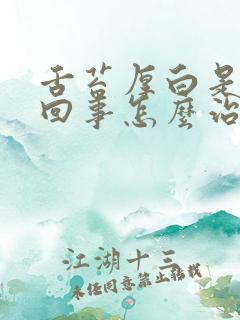 舌苔厚白是
回事怎麽治
江湖十三
未经同意禁止转载